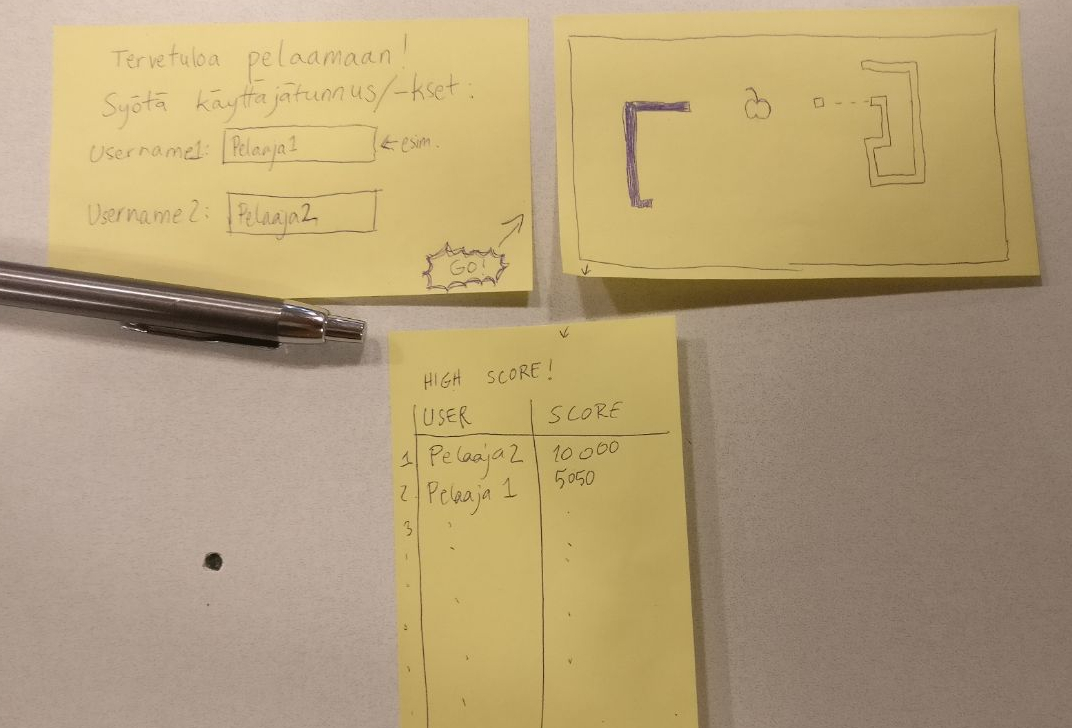 Tervetuloa pelaamaan!
Syötä käyttäjätunnus/-kset:
Username1: Pelaaja1 ← esim.
Username2: Pelaaja2
GO!
HIGH SCORE!
USER SCORE
1 Pelaaja2 10 000
2. Pelaaja 1 5050
3